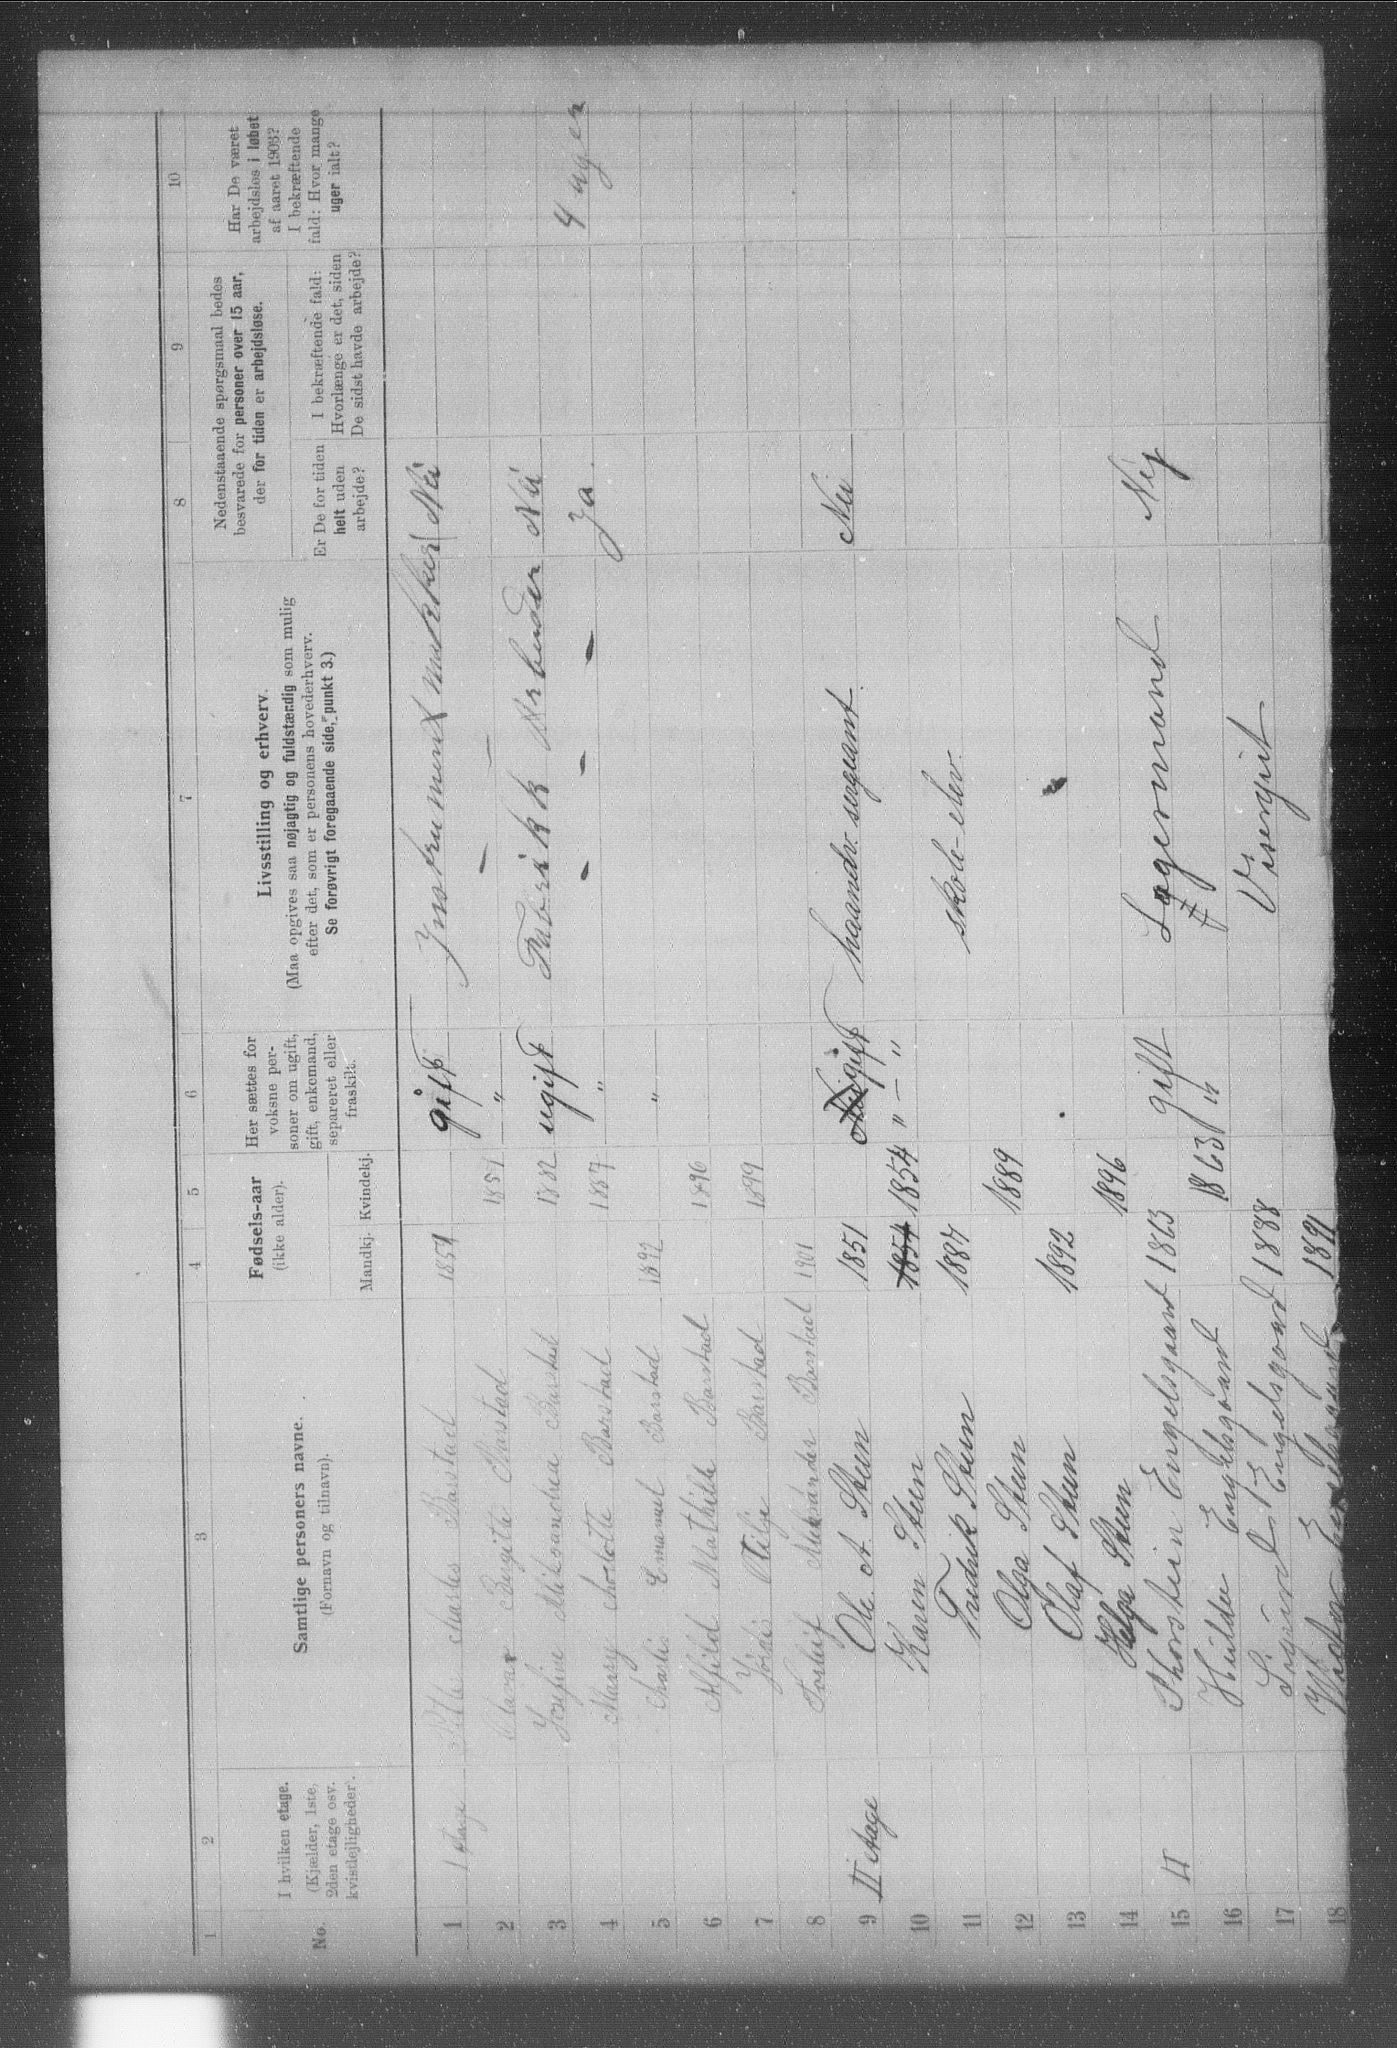 1 2 3 4 5 6 7 8 9 10
No.
I hvilken etage.
(Kjælder, 1ste,
2den etage osv.
kvistlejligheder).
Samtlige personers navne.
(Fornavn og tilnavn).
Fødsels-aar
(ikke alder).
Mandkj. Kvindekj.
Her sættes for
voksne per-
soner om ugift,
gift, enkemand,
separeret eller
fraskilt.
Livsstilling og erhverv.
(Maa opgives saa nøjagtig og fuldstændig som mulig
efter det, som er personens hovederhverv.
Se forøvrigt foregaaende side, punkt 3.)
Nedenstaaende spørgsmaal bedes
besvarede for personer over 15 aar,
der for tiden er arbejdsløse.
Er De for tiden
helt uden
arbejde?
I bekræftende fald:
Hvorlænge er det, siden
De sidst havde arbejde?
Har De været
arbejdsløs i løbet
af aaret 1903?
I bekræftende
fald: Hvor mange
uger ialt?
1 1 etage Charles Barstad 1851 gift Instrument Nei
2 Birgitte Barstad 1851 " — —
3 Josefine Barstad 1882 ugift Fabrikk Arbeider Nei
4 Charlotte Barstad 1887 " — — — Ja. 4 uger
5 Emanuel Barstad 1892 "
6 Mathilde Barstad 1896
7 Otilje Barstad 1899
8 Barstad 1901
9 II etage Ole A. Steen 1851 gift haandv. sergeant. Nei
10 Karen Steen 1854 1854 " — "
11 Fredrik Steen 1887 skole-elev.
12 Olga Steen 1889
13 Olaf Steen 1892 "
14 Helga Steen 1896
15 II Thorstein Engelsgaard 1863 gift Lagermand Nej
16 Hulda Engelsgaard 1863 "
17 Engelsgaard 1888 Visergut
18 1891